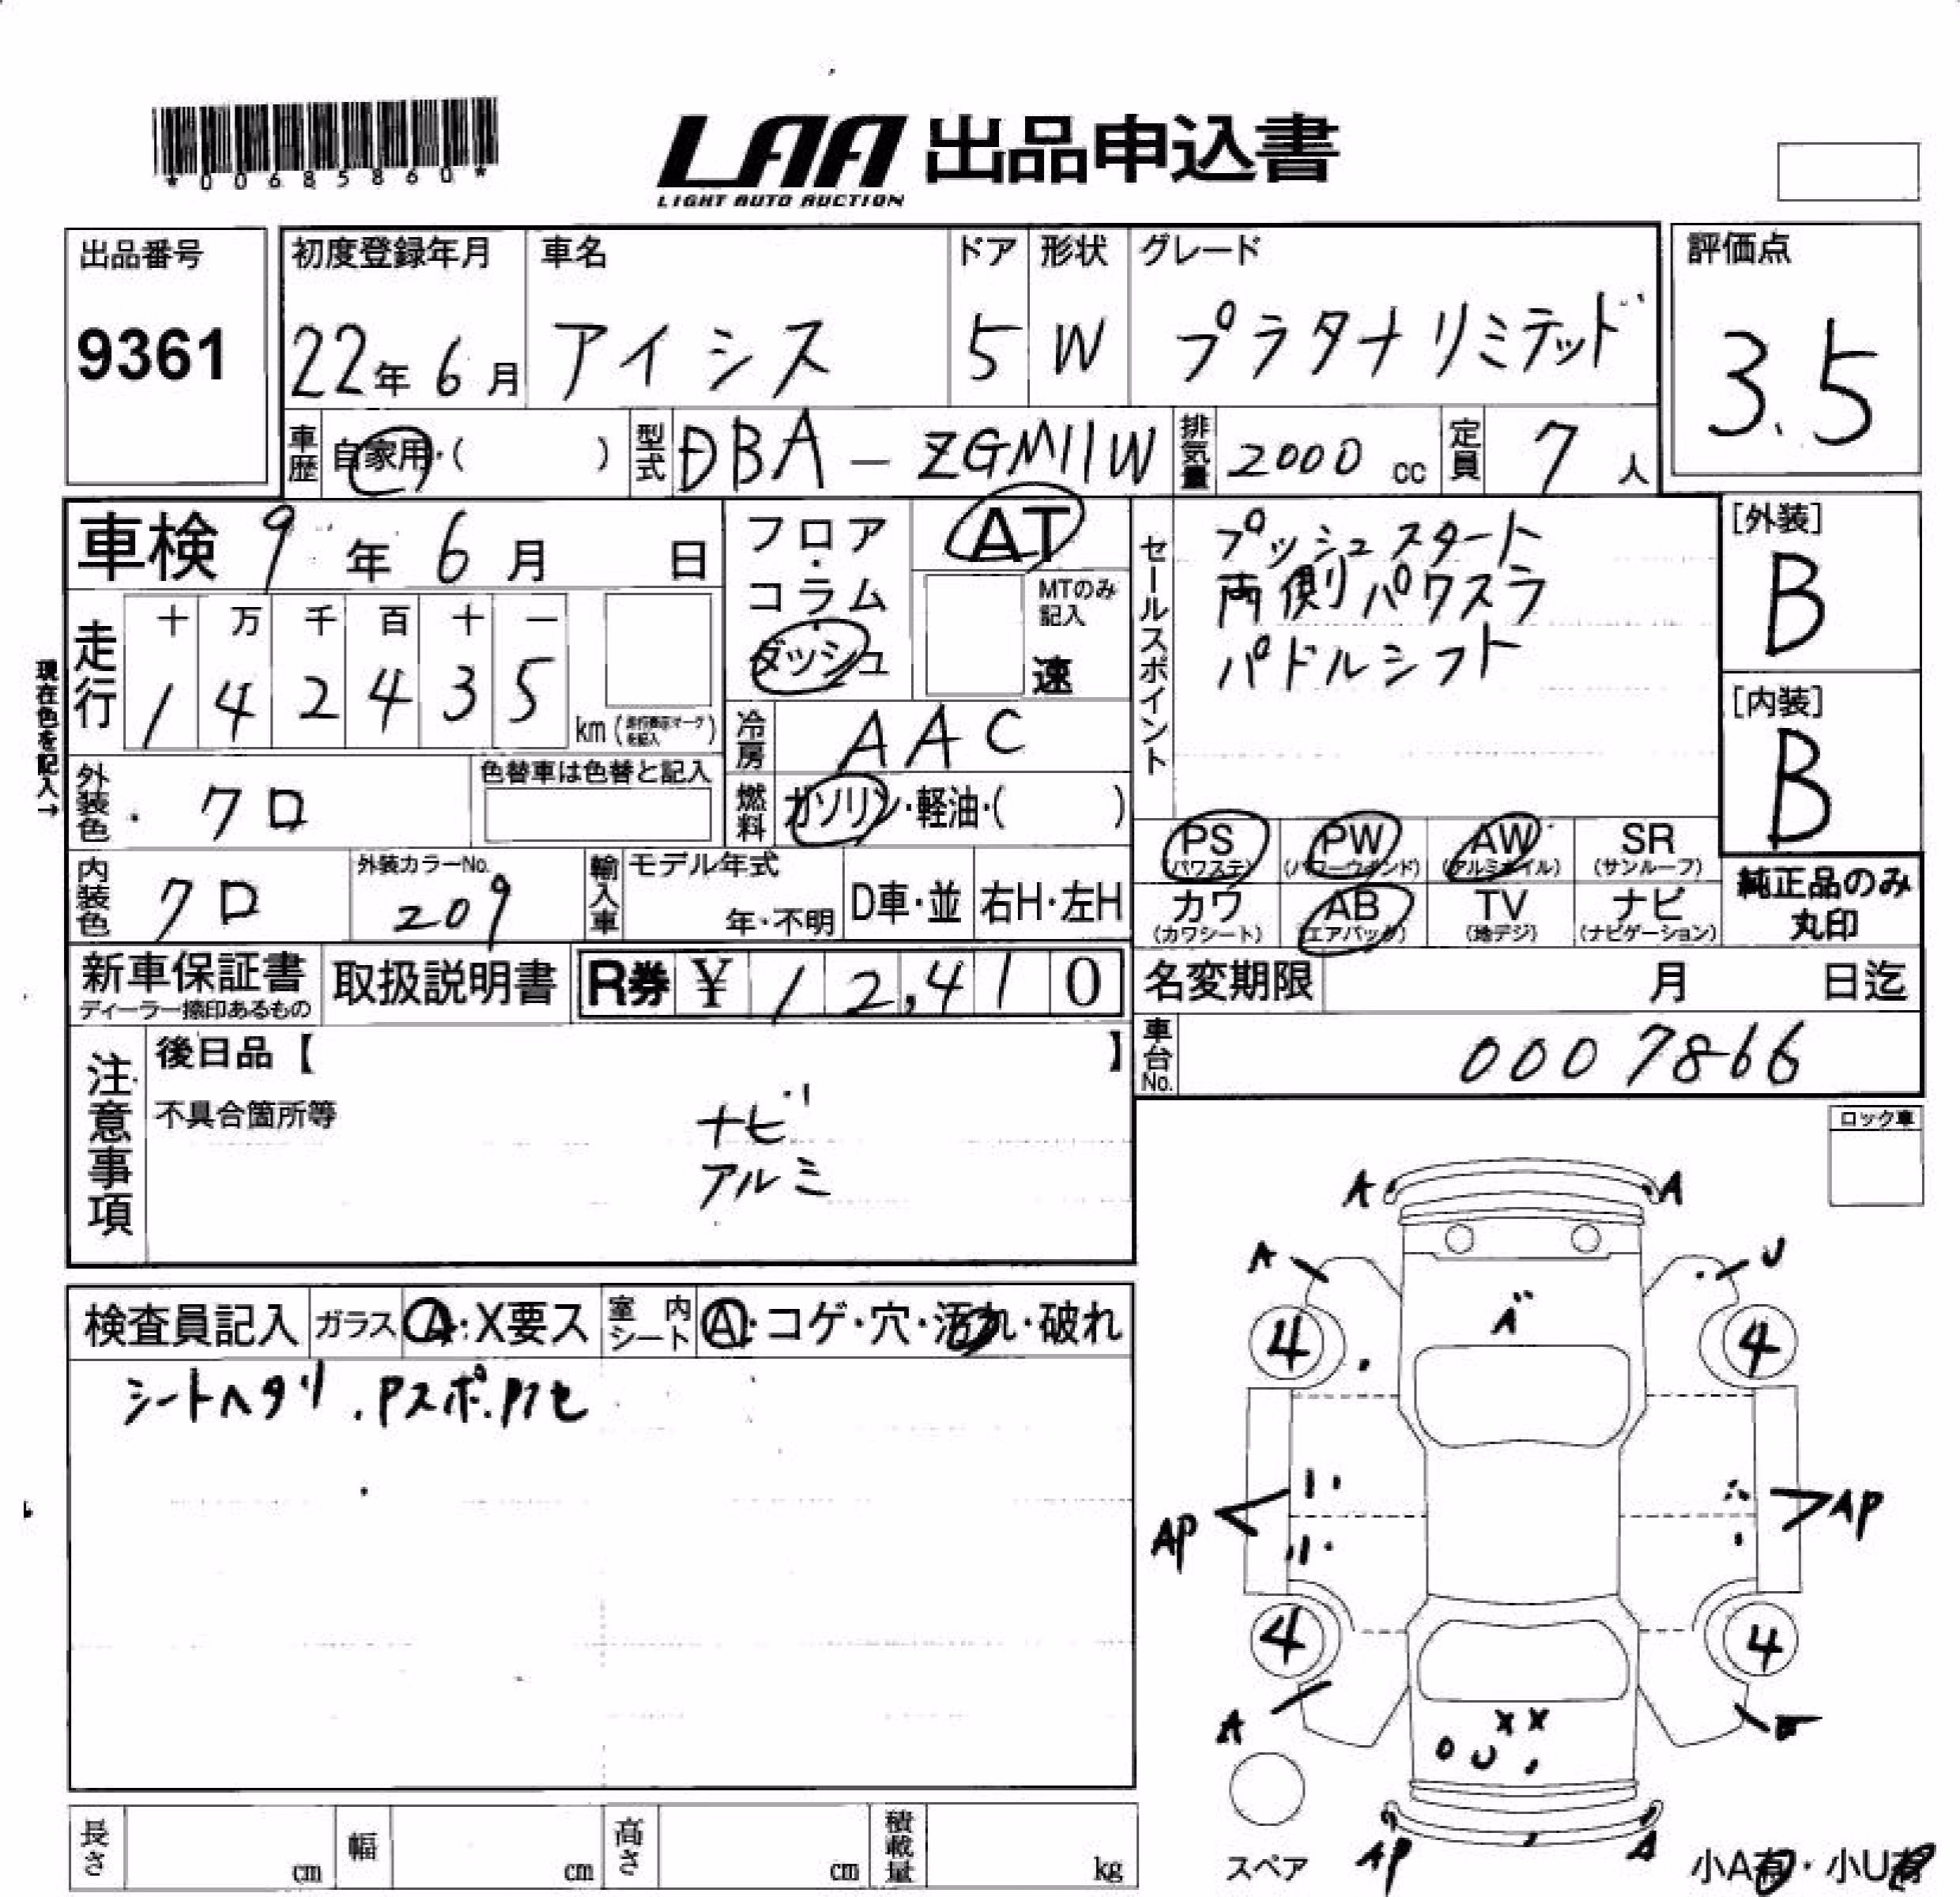 *00685860*
LAA 出品申込書
LIGHT AUTO AUCTION
出品番号
9361
初度登録年月
22年 6月
車名
アイシス
ドア
5
形状
W
グレード
プラタナリミテッド
評価点
3.5
車歴 自家用・( )
型式 DBA - ZGM11W
排気量 2000 cc
定員 7 人
車検 9 年 6 月 日
走行
十 万 千 百 十 一
1 4 2 4 3 5
km
現在色を記入→
フロア・コラム
ダッシュ
AT
MTのみ記入
速
冷房 AAC
燃料 ガソリン・軽油・( )
セールスポイント
プッシュスタート
両側パワスラ
パドルシフト
[外装]
B
[内装]
B
外装色 クロ
色替車は色替と記入
内装色 クロ
外装カラーNo.
209
輸入車
モデル年式
年・不明
D車・並
右H・左H
PS (パワステ)
PW (パワーウインド)
AW (アルミホイル)
SR (サンルーフ)
カワ (カワシート)
AB (エアバック)
TV (地デジ)
ナビ (ナビゲーション)
純正品のみ
丸印
新車保証書
ディーラー捺印あるもの
取扱説明書
R券 ¥ 12,410
名変期限 月 日迄
車台No. 0007866
注意事項
後日品【 】
不具合箇所等
ナビ
アルミ
ロック車
検査員記入
ガラス A・X要ス
室内シート A・コゲ・穴・汚れ・破れ
シートヘタリ.Pスポ.P1セ
A A
A U
A
4 4
AP AP
4 4
A
X X
U
スペア
AP A
小A有・小U有
長さ cm
幅 cm
高さ cm
積載量 kg